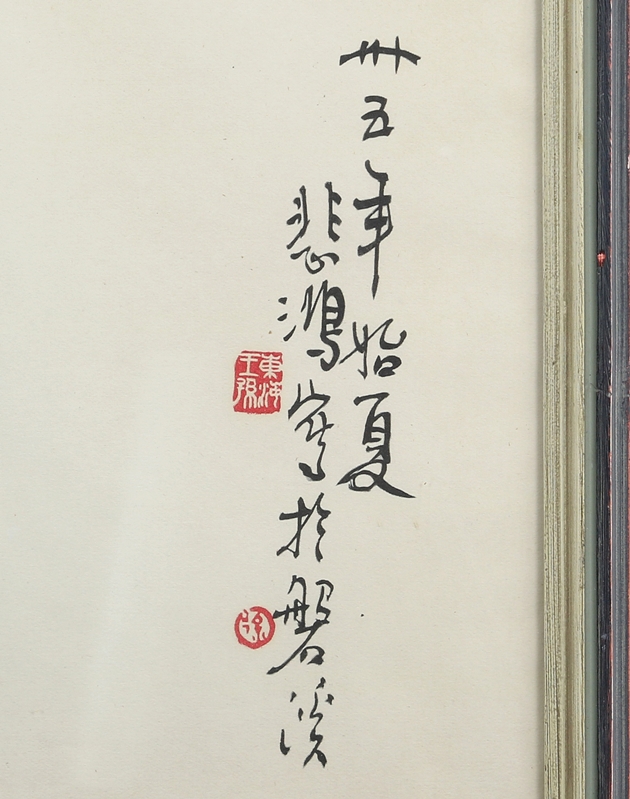 卅五年始夏
悲鴻寫於磐溪
東海
王孫